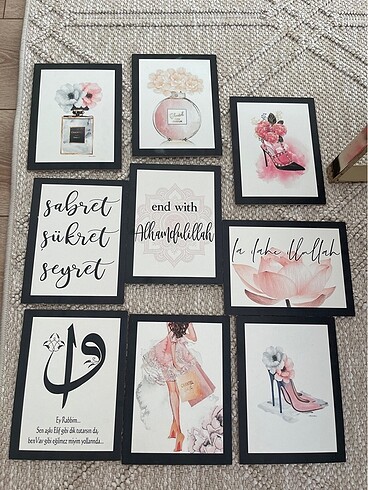 sabret
şükret
seyret
end with
Alhamdulillah
la ilahe illallah
و
Ey Rabbim...
Sen aşkı Elif gibi dik tutansın da,
ben Vav gibi eğilmez miyim yollarında...